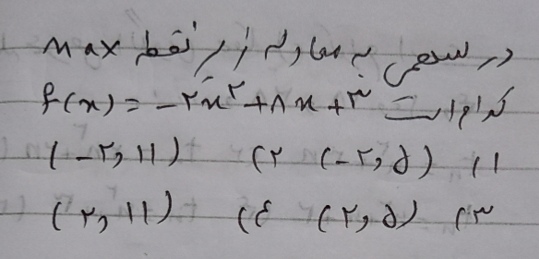 در سهمی به معادله زیر نقطه max
کدام است f(x) = -۲x²+۸x+۳
۱) (-۲, ۵) ۲) (-۲, ۱۱)
۳) (۲, ۵) ۴) (۲, ۱۱)